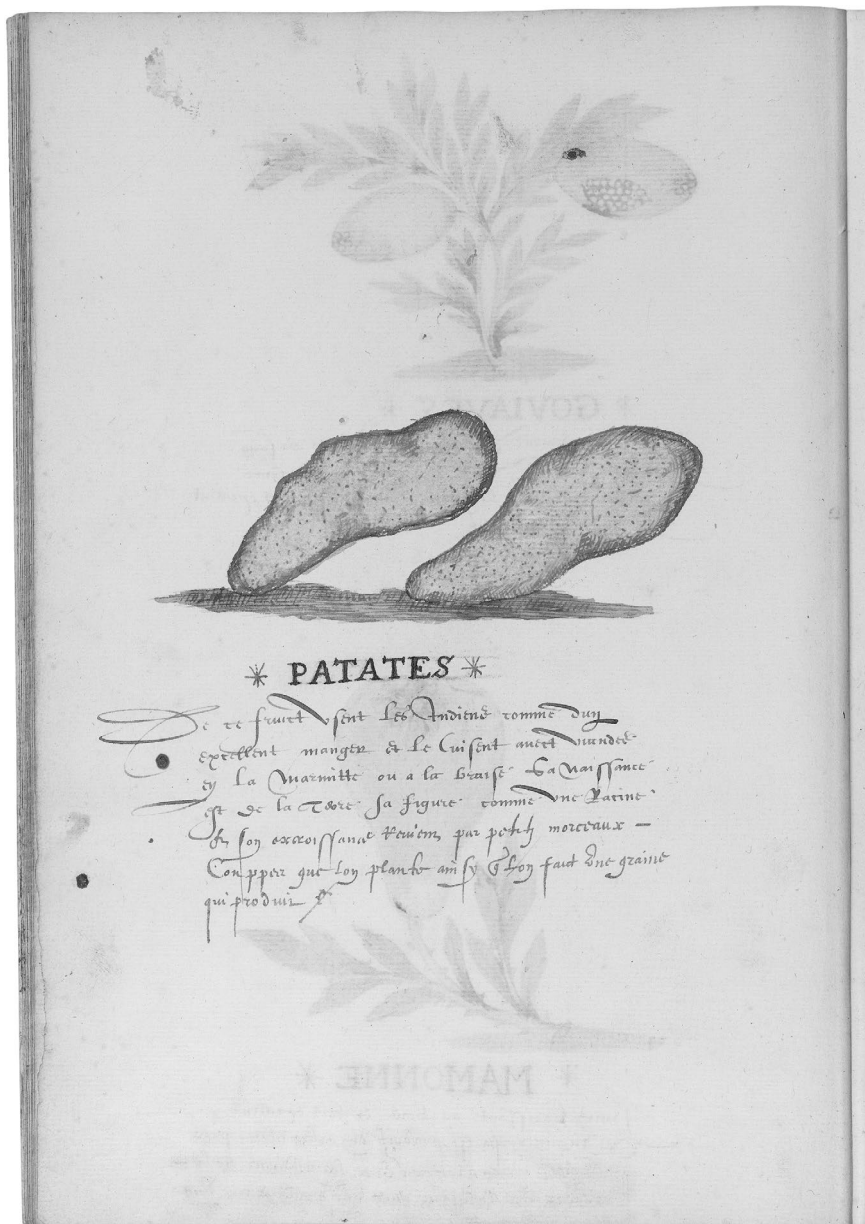 * PATATES *
De ce fruict usent les Indiens comme dung
excellent manger et le Cuisent avect viandes
en La Marmitte ou a la braise Sa Naissance
est de la Terre sa figure comme une Racine
son excroissance par petits morceaux –
Coupper que lon plante ainsy lhon faict une graine
qui produit